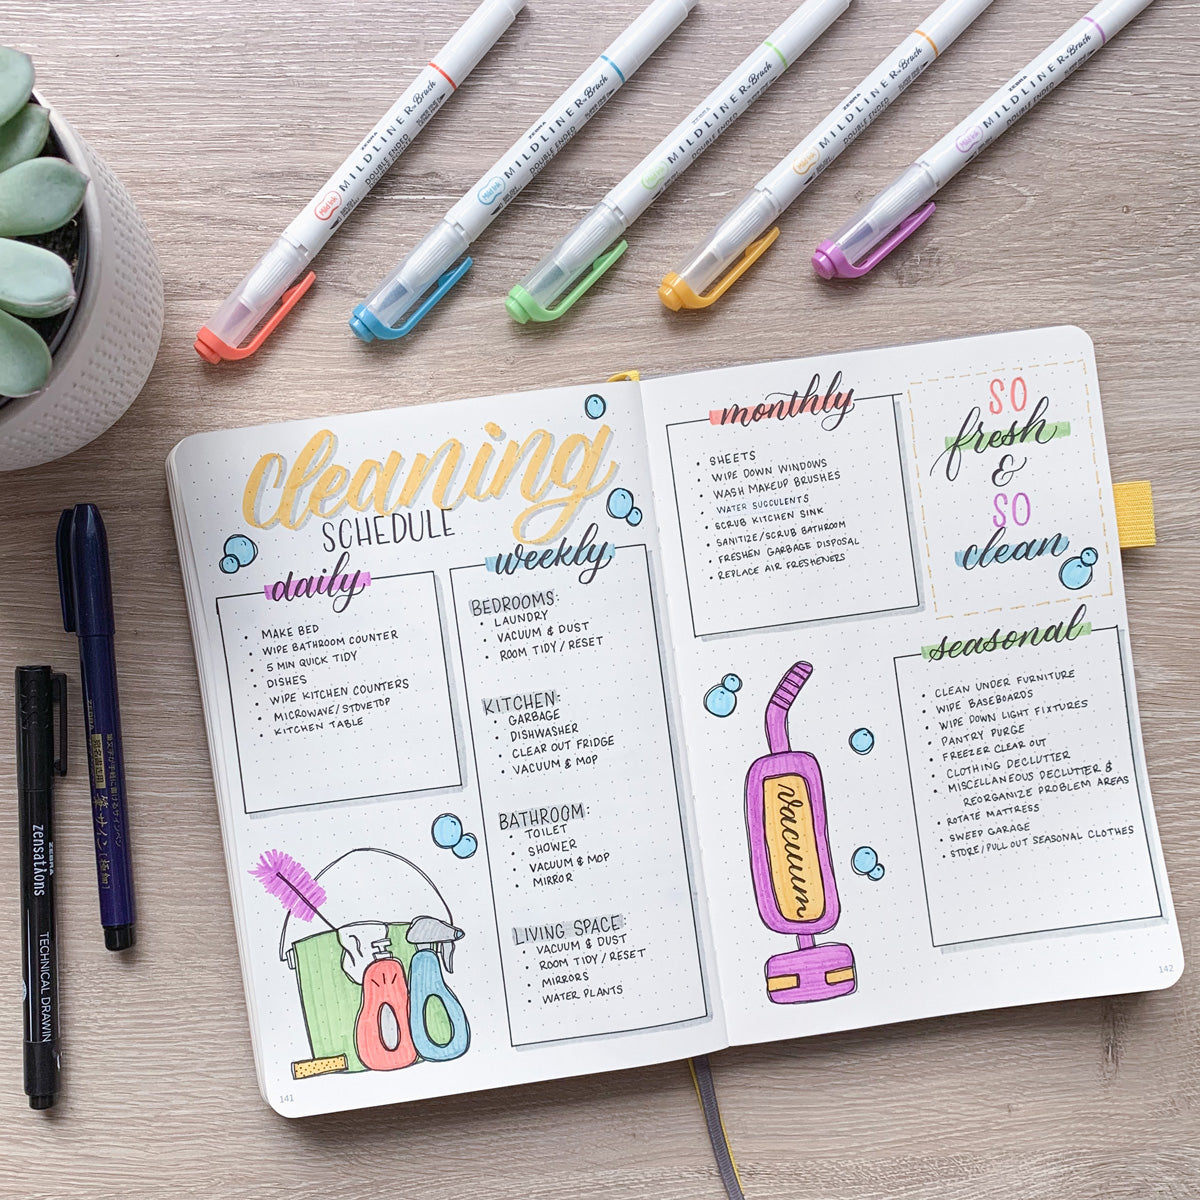 ZEBRA
MILDLINER™ Brush
DOUBLE ENDED
Mild Ink
ZEBRA
MILDLINER™ Brush
DOUBLE ENDED
Mild Ink
ZEBRA
MILDLINER™ Brush
DOUBLE ENDED
Mild Ink
ZEBRA
MILDLINER™ Brush
DOUBLE ENDED
Mild Ink
ZEBRA
MILDLINER™ Brush
DOUBLE ENDED
Mild Ink
cleaning
SCHEDULE
daily
• MAKE BED
• WIPE BATHROOM COUNTER
• 5 MIN QUICK TIDY
• DISHES
• WIPE KITCHEN COUNTERS
• MICROWAVE/STOVETOP
• KITCHEN TABLE
weekly
BEDROOMS:
• LAUNDRY
• VACUUM & DUST
• ROOM TIDY/RESET
KITCHEN:
• GARBAGE
• DISHWASHER
• CLEAR OUT FRIDGE
• VACUUM & MOP
BATHROOM:
• TOILET
• SHOWER
• VACUUM & MOP
• MIRROR
LIVING SPACE
• VACUUM & DUST
• ROOM TIDY/RESET
• MIRRORS
• WATER PLANTS
141
monthly
• SHEETS
• WIPE DOWN WINDOWS
• WASH MAKEUP BRUSHES
• WATER SUCCULENTS
• SCRUB KITCHEN SINK
• SANITIZE/SCRUB BATHROOM
• FRESHEN GARBAGE DISPOSAL
• REPLACE AIR FRESHENERS
SO
fresh
&
SO
clean
vacuum
seasonal
• CLEAN UNDER FURNITURE
• WIPE BASEBOARDS
• WIPE DOWN LIGHT FIXTURES
• PANTRY PURGE
• FREEZER CLEAR OUT
• CLOTHING DECLUTTER
• MISCELLANEOUS DECLUTTER &
REORGANIZE PROBLEM AREAS
• ROTATE MATTRESS
• SWEEP GARAGE
• STORE/PULL OUT SEASONAL CLOTHES
142
ZEBRA
zensations
TECHNICAL DRAWIN
ZEBRA
筆サイン